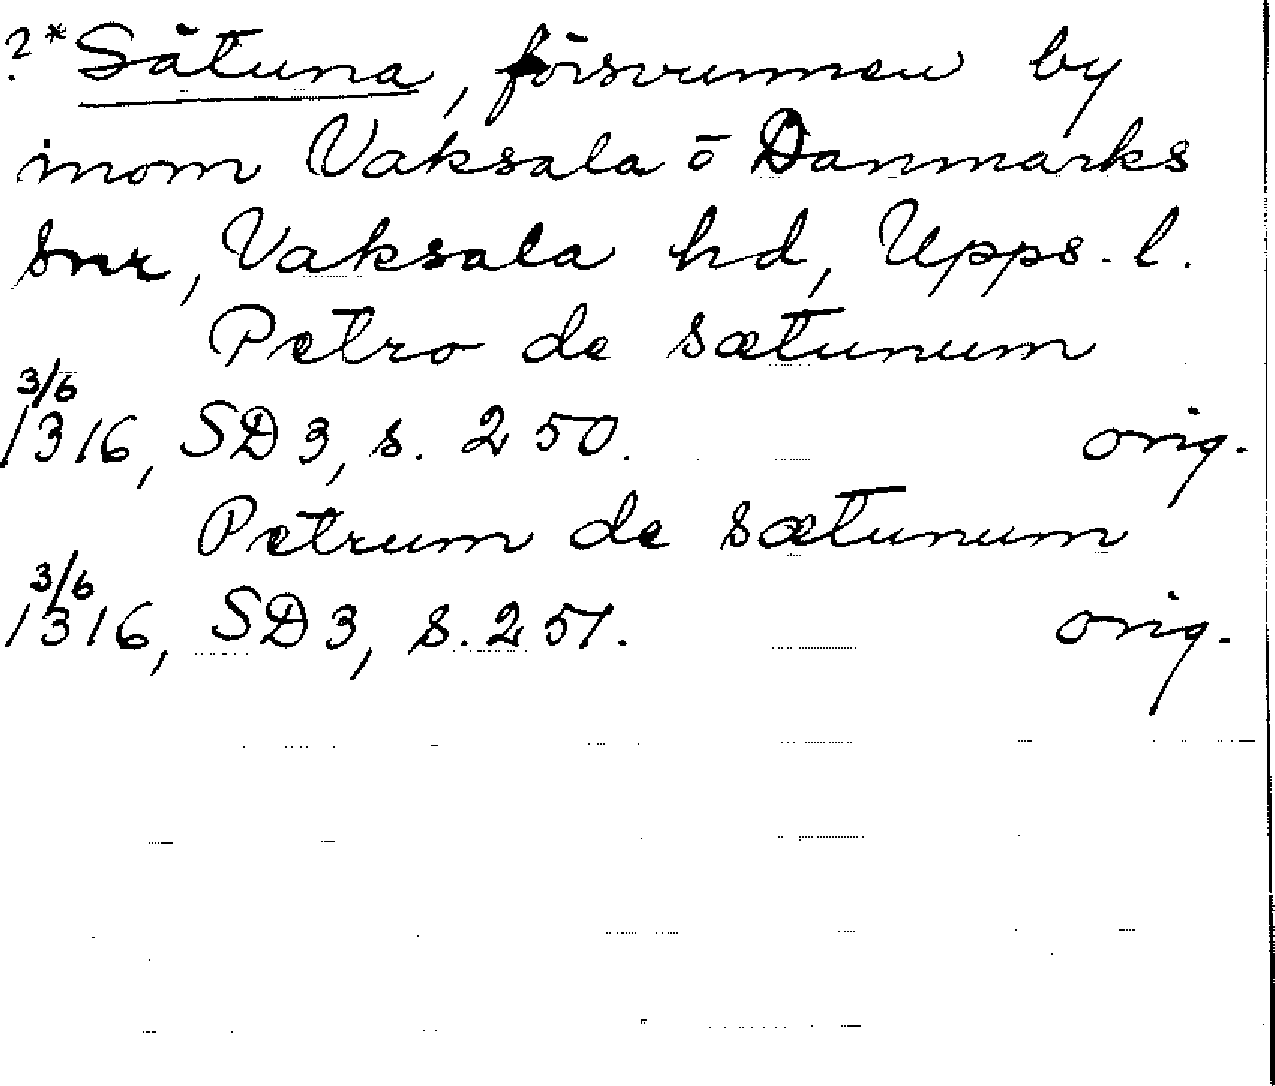 ?* Sätuna, försvunnen by
inom Vaksala ō Danmarks
snr, Vaksala hd, Upps. l.
Petro de sætunum
3/6
1316, SD 3, s. 250. orig.
Petrum de sætunum
3/6
1316, SD 3, s. 251. orig.